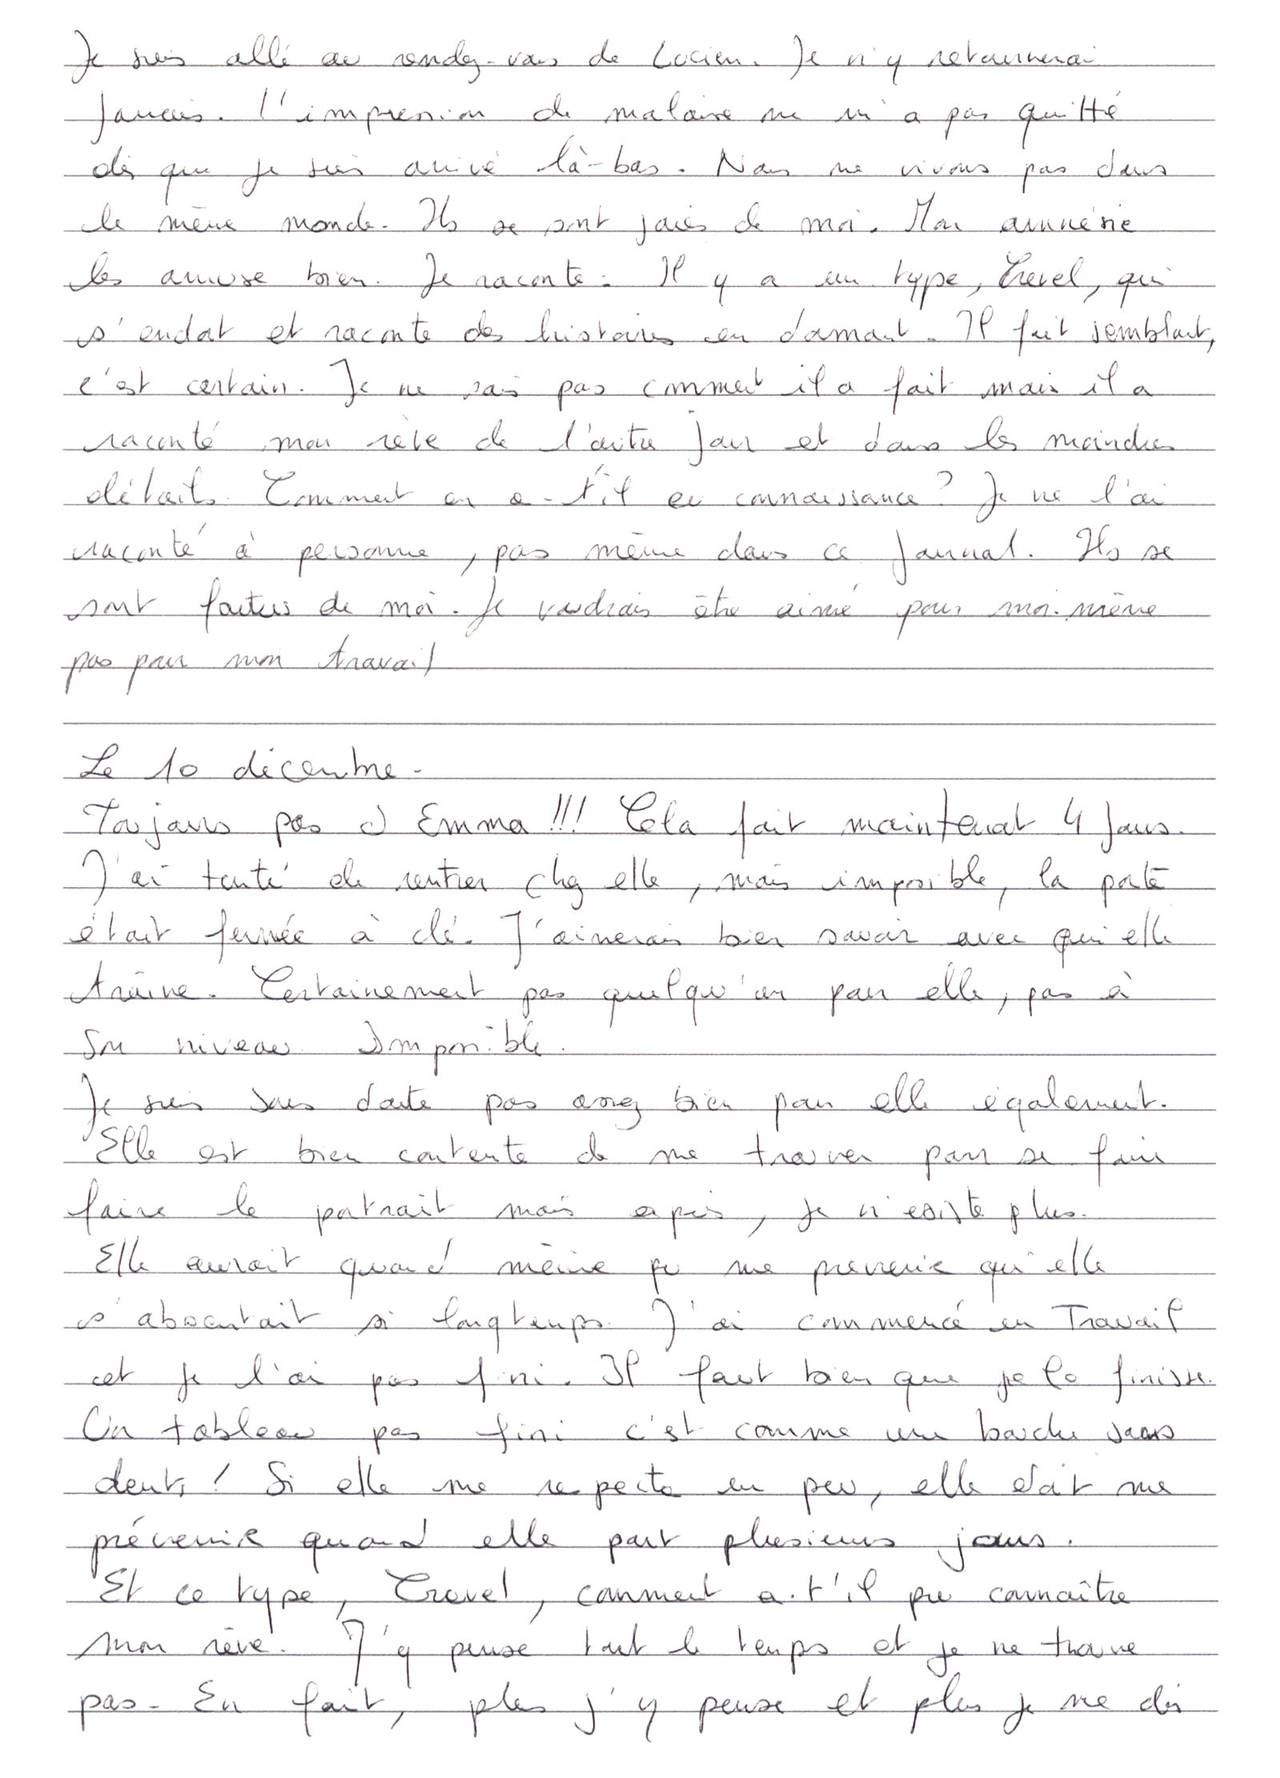 Je suis allé au rendez-vous de Lucien. Je n'y retournerai
jamais. L'impression de malaise ne m'a pas quitté
dès que je suis arrivé là-bas. Nous ne vivons pas dans
le même monde. Ils se sont joués de moi. Mon amnésie
les amuse bien. Je raconte : Il y a un type, Crevel, qui
s'endort et raconte des histoires en dormant. Il fait semblant,
c'est certain. Je ne sais pas comment il a fait mais il a
raconté mon rêve de l'autre jour et dans les moindres
détails. Comment en a-t'il eu connaissance? Je ne l'ai
raconté à personne, pas même dans ce journal. Ils se
sont foutus de moi. Je voudrais être aimé pour moi-même
pas pour mon travail
Le 10 décembre.
Toujours pas d'Emma !!! Cela fait maintenant 4 jours.
J'ai tenté de rentrer chez elle, mais impossible, la porte
était fermée à clé. J'aimerais bien savoir avec qui elle
traîne. Certainement pas quelqu'un pour elle, pas à
son niveau. Impossible.
Je suis sans doute pas assez bien pour elle également.
Elle est bien contente de me trouver pour se faire
faire le portrait mais après, je n'existe plus.
Elle aurait quand même pu me prevenir qu'elle
s'absentait si longtemps. J'ai commencé un Travail
et je l'ai pas fini. Il faut bien que je le finisse.
Un tableau pas fini c'est comme une bouche sans
dents ! Si elle me respecte un peu, elle doit me
prévenir quand elle part plusieurs jours.
Et ce type, Crevel, comment a-t'il pu connaître
mon rêve. J'y pense tout le temps et je ne trouve
pas. En fait, plus j'y pense et plus je me dis